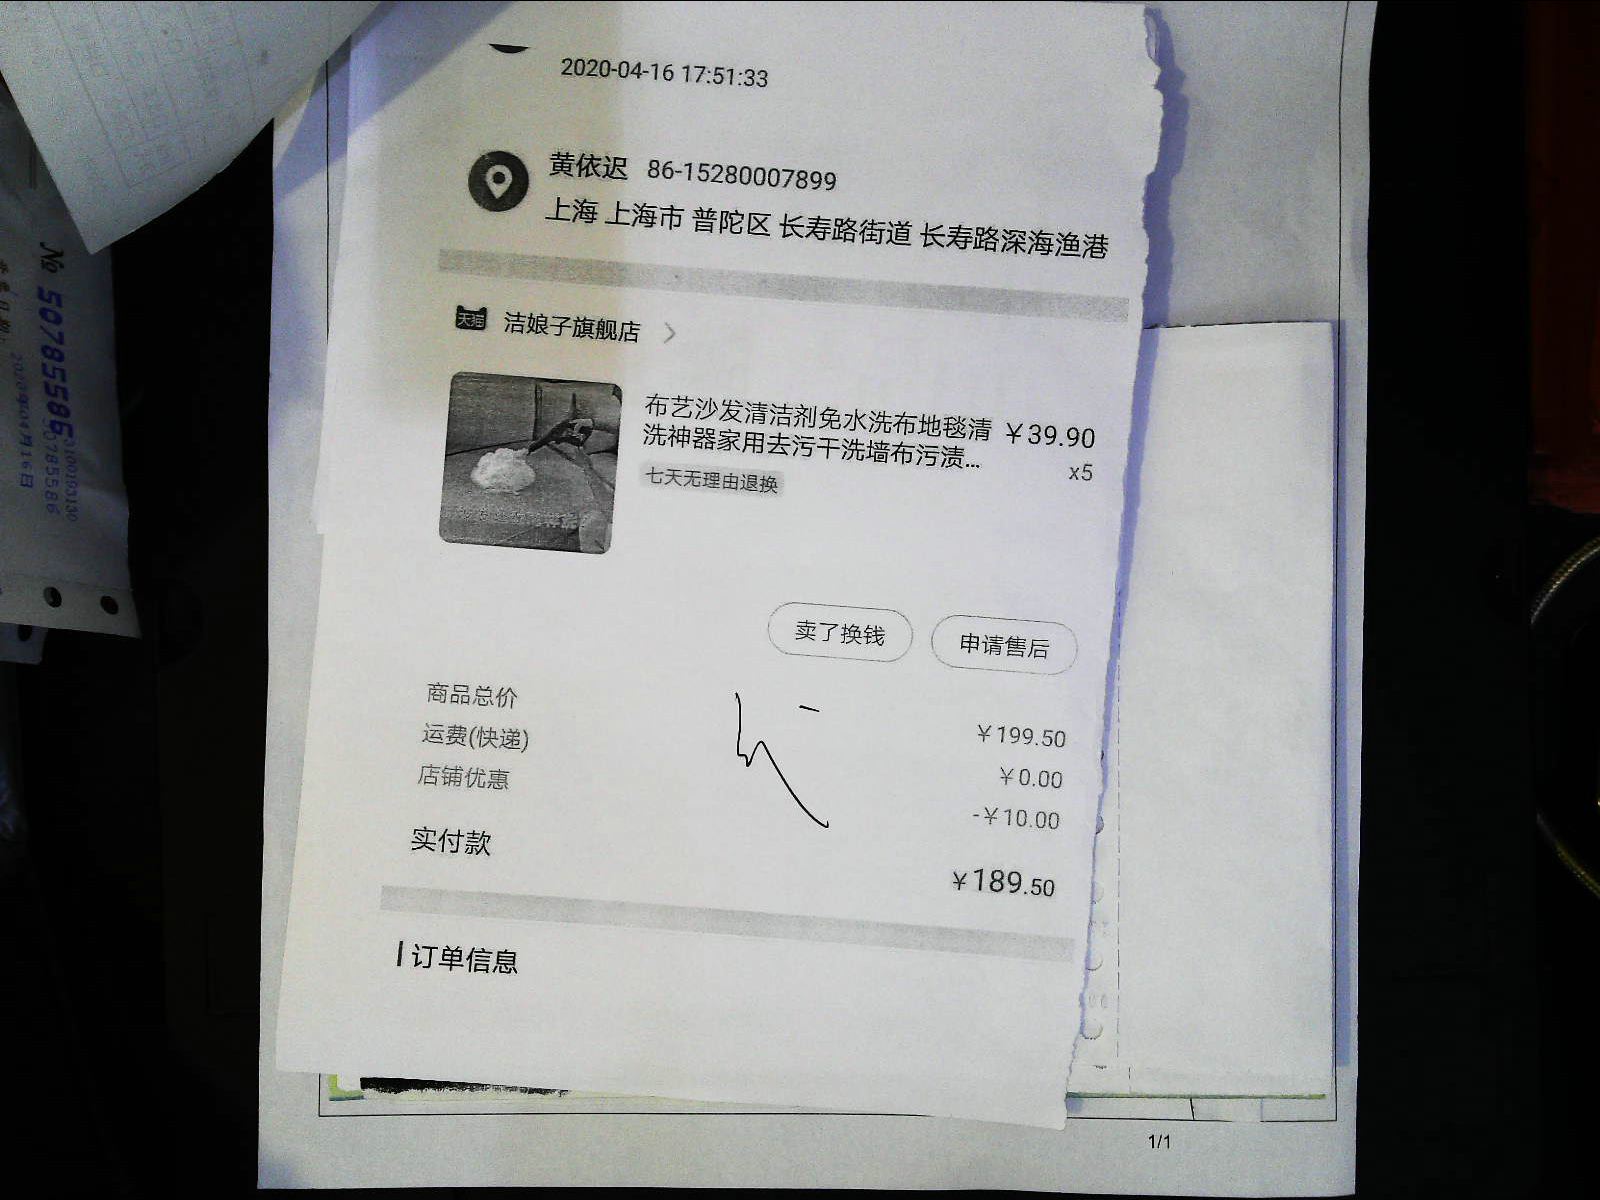 2020-04-16 17:51:33
黄依迟 86-15280007899
上海 上海市 普陀区 长寿路街道 长寿路深海渔港
天猫 洁娘子旗舰店
布艺沙发清洁剂免水洗布地毯清 ￥39.90
洗神器家用去污干洗墙布污渍... x5
七天无理由退换
卖了换钱 申请售后
商品总价 ￥199.50
运费(快递) ￥0.00
店铺优惠 -￥10.00
实付款 ￥189.50
订单信息
1/1
№ 50785586
50785586
2020年04月16日